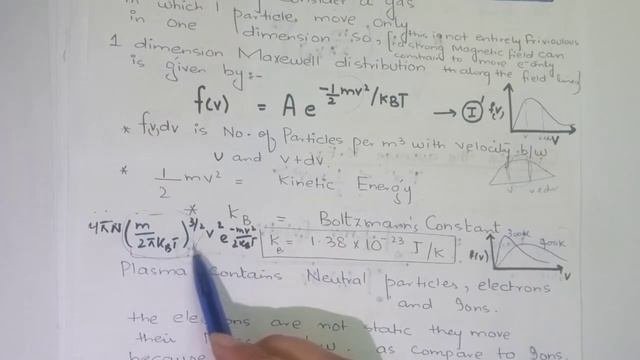 consider a gas
in which 1 particle, move only
in one dimension so, f
this is not entirely frivioulous
a strong magnetic field can
constrain to move e- only
along the field lines
1 dimension Maxewell distribution
is given by:-
f(v) = A e^{-1/2 mv²/KBT} → I
f(v)
V
* f(v)dv is No. of Particles per m³ with velocity b/w
v and v+dv.
v v+dv
* 1/2 mv² = Kinetic Energy
* KB = Boltzmann's Constant
4πN (m/2πKBT)^{3/2} v² e^{-mv²/2KBT}
KB = 1.38 × 10^{-23} J/K
300K
f(v)
v
Plasma contains Neutral particles, electrons
and Ions.
the electrons are not static they move
their as compare to Ions
because